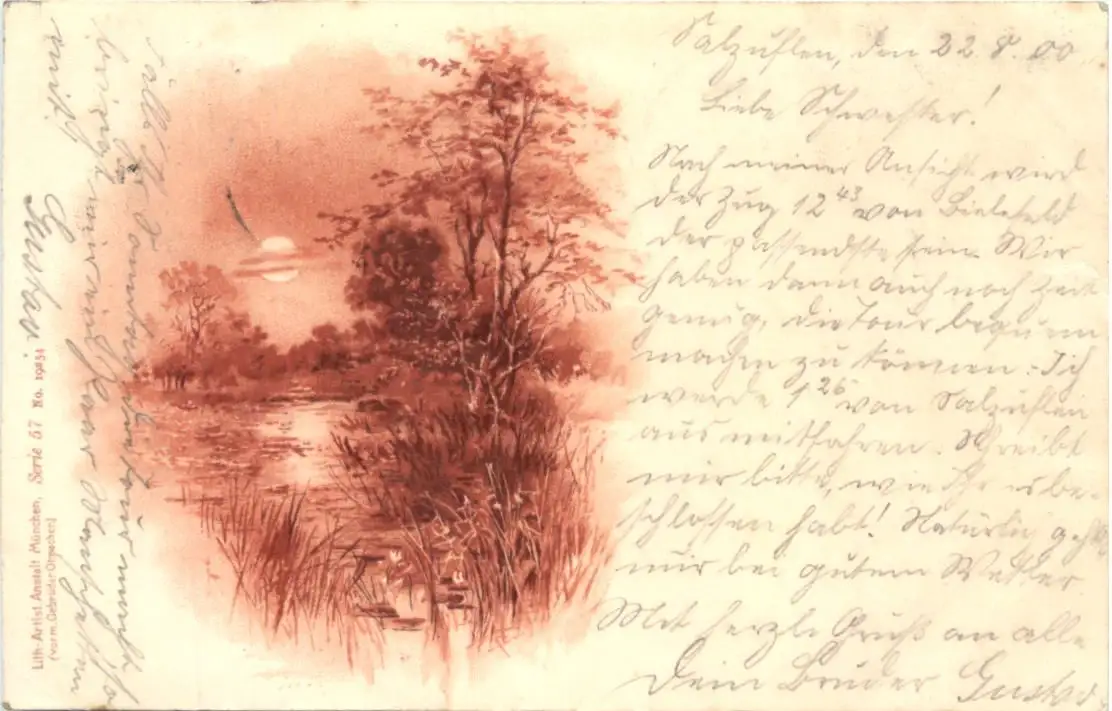 Salzuflen, den 22.8.00
Liebe Schwester!
Nach meiner Ansicht wird
der Zug 12 43 von Bielefeld
der passendste sein. Wir
haben dann auch noch Zeit
genug, die Tour bequem
machen zu können. Ich
werde 1 26 von Salzuflen
aus mitfahren. Schreibt
mir bitte, wie Ihr es be-
schlossen habt! Natürlich geht's
nur bei gutem Wetter
Mit herzl. Gruß an alle
Dein Bruder Gustav
mir ein paar
mit
Gustav
Lith.-Artist. Anstalt München, Serie 57 No. 19454
(vorm. Gebrüder Obpacher)